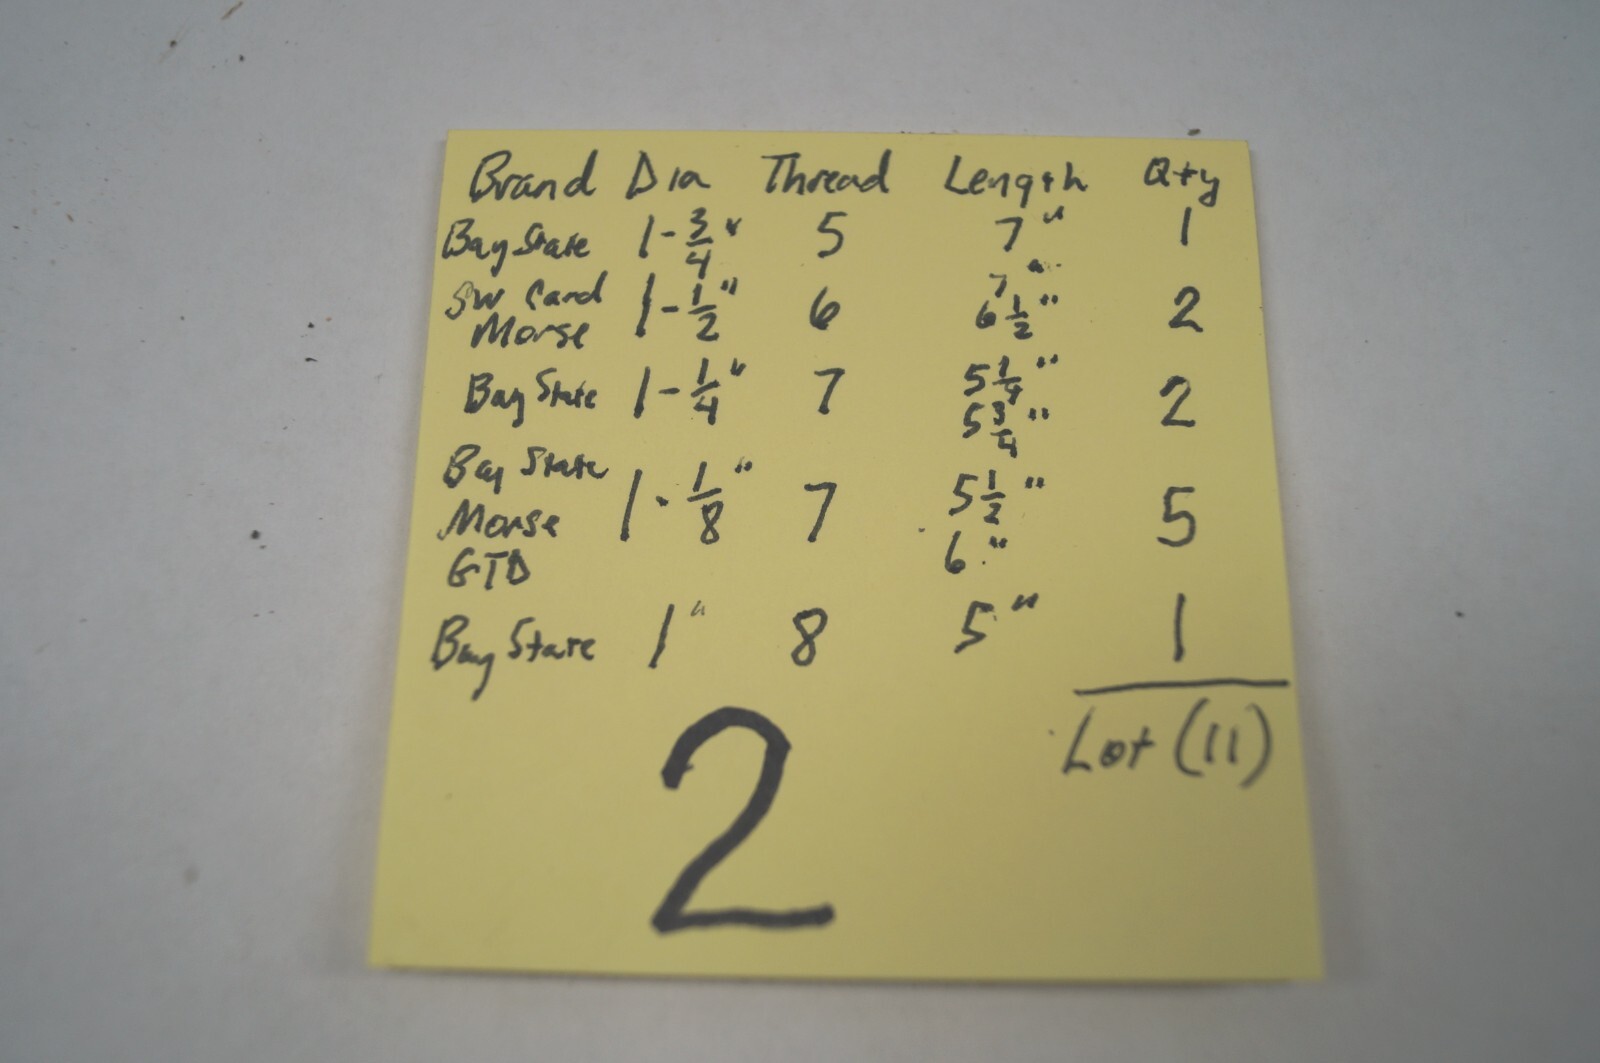 Brand Dia Thread Length Qty
Bay State 1-3/4" 5 7" 1
SW Card 1-1/2" 6 7" 2
Morse 6 1/2"
Bay State 1-1/4" 7 5 1/4" 2
5 3/4"
Bay State
Morse 1-1/8" 7 5 1/2" 5
GTD 6"
Bay State 1" 8 5" 1
Lot (11)
2